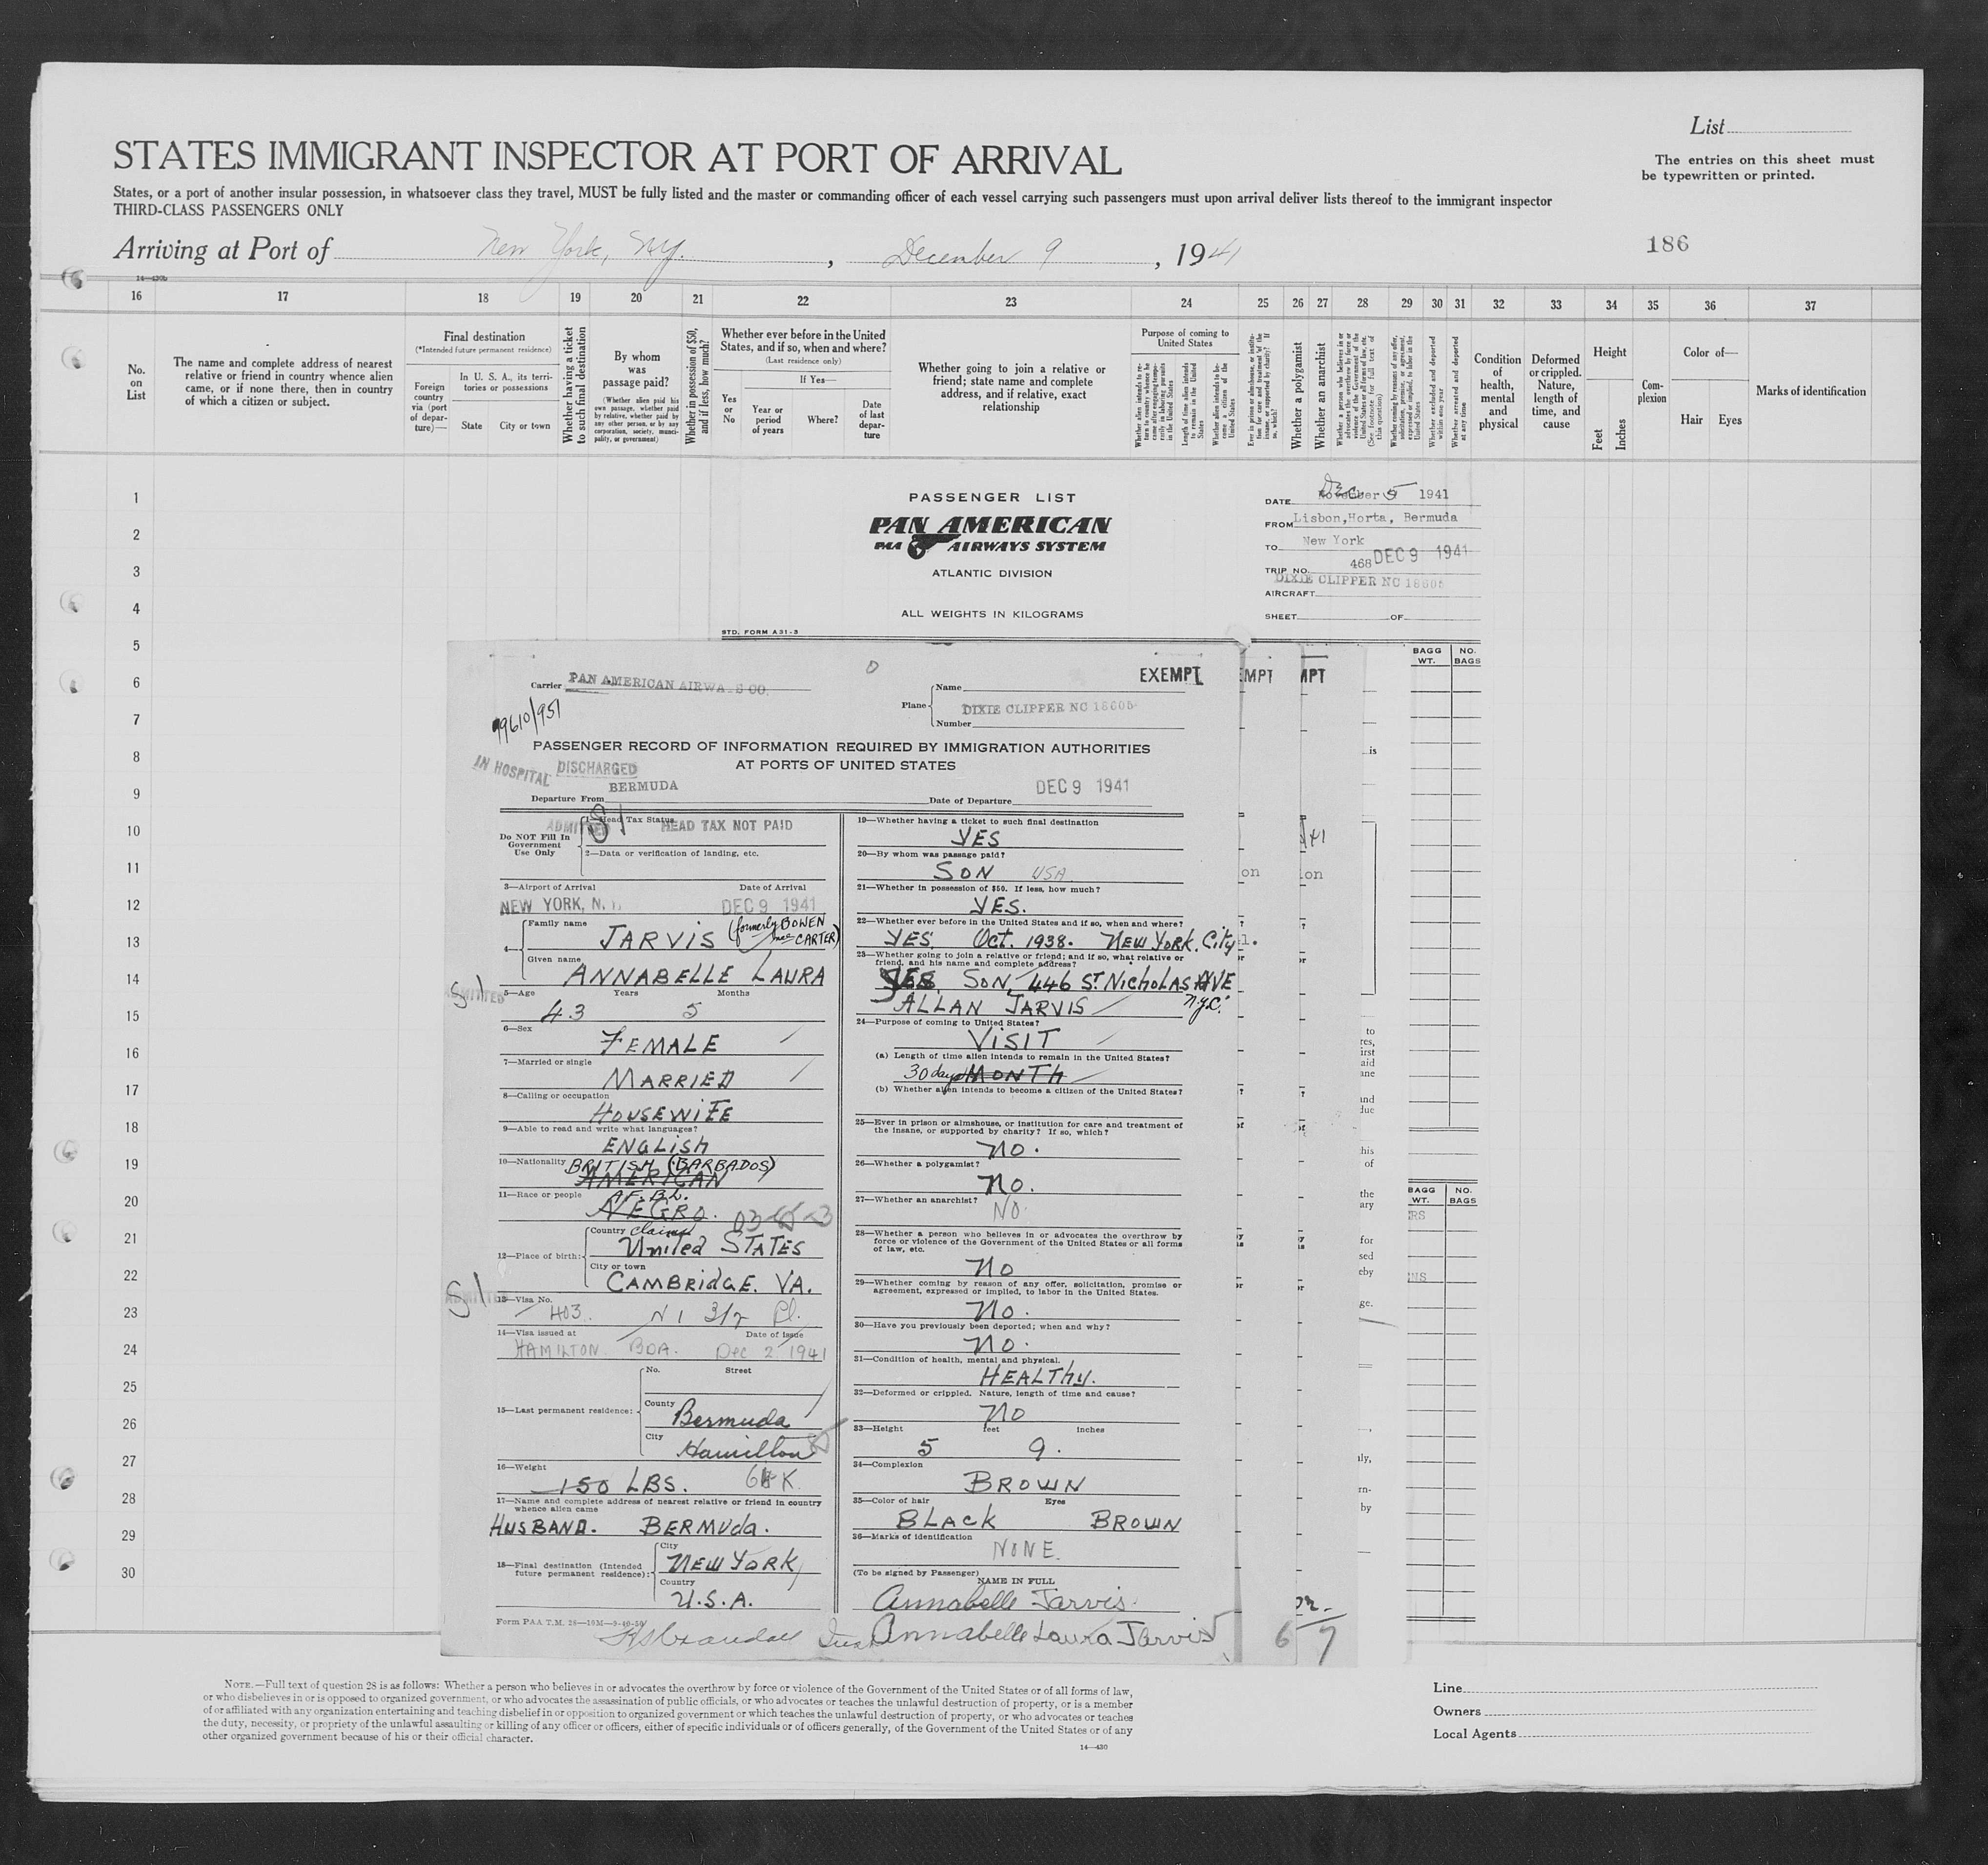 List
STATES IMMIGRANT INSPECTOR AT PORT OF ARRIVAL
The entries on this sheet must
be typewritten or printed.
States, or a port of another insular possession, in whatsoever class they travel, MUST be fully listed and the master or commanding officer of each vessel carrying such passengers must upon arrival deliver lists thereof to the immigrant inspector
THIRD-CLASS PASSENGERS ONLY
Arriving at Port of New York, NY. , December 9 , 1941
186
16 17 18 19 20 21 22 23 24 25 26 27 28 29 30 31 32 33 34 35 36 37
No. on List
The name and complete address of nearest
relative or friend in country whence alien
came, or if none there, then in country
of which a citizen or subject.
Final destination
(*Intended future permanent residence)
Foreign country via (port of depar-ture)—
In U. S. A., its terri-
tories or possessions
State City or town
Whether having a ticket
to such final destination
By whom
was
passage paid?
(Whether alien paid his
own passage, whether paid
by relative, whether paid by
any other person, or by any
corporation, society, munici-
pality, or government)
Whether in possession of $50,
and if less, how much?
Whether ever before in the United
States, and if so, when and where?
(Last residence only)
If Yes—
Yes or No
Year or period of years
Where?
Date of last depar-ture
Whether going to join a relative or
friend; state name and complete
address, and if relative, exact
relationship
Purpose of coming to
United States
Length of time alien intends to remain in the United States
Whether alien intends to be-come a citizen of the United States
Whether a polygamist
Whether an anarchist
Whether excluded and deported within one year
Whether arrested and deported at any time
Condition of health, mental and physical
Deformed or crippled. Nature, length of time, and cause
Height
Feet Inches
Com-plexion
Color of—
Hair Eyes
Marks of identification
1
2
3
4
5
6
7
8
9
10
11
12
13
14
15
16
17
18
19
20
21
22
23
24
25
26
27
28
29
30
PASSENGER LIST
PAN AMERICAN
PAA AIRWAYS SYSTEM
ATLANTIC DIVISION
ALL WEIGHTS IN KILOGRAMS
STD. FORM A31-3
DATE November Dec 5 1941
FROM Lisbon, Horta, Bermuda
TO New York
DEC 9 1941
TRIP NO. 468
DIXIE CLIPPER NC 18605
AIRCRAFT
SHEET OF
BAGG WT. NO. BAGS
BAGG WT. NO. BAGS
Carrier PAN AMERICAN AIRWAYS CO.
EXEMPT
EMPT
MPT
99610/951
Plane Name
DIXIE CLIPPER NC 18605
Number
PASSENGER RECORD OF INFORMATION REQUIRED BY IMMIGRATION AUTHORITIES
AT PORTS OF UNITED STATES
IN HOSPITAL DISCHARGED
Departure From BERMUDA Date of Departure DEC 9 1941
Do NOT Fill In
Government
Use Only
1—Head Tax Status
ADMITTED HEAD TAX NOT PAID
2—Data or verification of landing, etc.
3—Airport of Arrival Date of Arrival
NEW YORK, N. Y. DEC 9 1941
4— Family name JARVIS (formerly BOWEN
nee CARTER)
Given name ANNABELLE LAURA
5—Age Years Months
43 5
6—Sex
FEMALE
7—Married or single
MARRIED
8—Calling or occupation
HOUSEWIFE
9—Able to read and write what languages?
ENGLISH
10—Nationality BRITISH (BARBADOS)
AMERICAN
11—Race or people AF. BL.
NEGRO.
12—Place of birth: Country claims
United STATES
City or town
CAMBRIDGE. VA.
13—Visa No.
403. 3/2 Pl.
14—Visa issued at Date of issue
HAMILTON BDA. Dec 2 1941
15—Last permanent residence: No. Street
County
Bermuda
City
Hamilton
16—Weight
150 LBS. K.
17—Name and complete address of nearest relative or friend in country
whence alien came
HUSBAND. BERMUDA.
18—Final destination (Intended
future permanent residence): City
NEW YORK
Country
U.S.A.
Form PAA T.M. 28—10M—9-40-50
19—Whether having a ticket to such final destination
YES
20—By whom was passage paid?
SON USA
21—Whether in possession of $50. If less, how much?
YES.
22—Whether ever before in the United States and if so, when and where?
YES Oct. 1938. NEW YORK. City
23—Whether going to join a relative or friend; and if so, what relative or
friend, and his name and complete address?
YES. SON, 446 ST. NICHOLAS AVE
ALLAN JARVIS N.Y.C.
24—Purpose of coming to United States?
VISIT
(a) Length of time alien intends to remain in the United States?
30 days MONTH
(b) Whether alien intends to become a citizen of the United States?
25—Ever in prison or almshouse, or institution for care and treatment of
the insane, or supported by charity? If so, which?
NO.
26—Whether a polygamist?
NO.
27—Whether an anarchist?
NO.
28—Whether a person who believes in or advocates the overthrow by
force or violence of the Government of the United States or all forms
of law, etc.
NO
29—Whether coming by reason of any offer, solicitation, promise or
agreement, expressed or implied, to labor in the United States.
NO.
30—Have you previously been deported; when and why?
NO.
31—Condition of health, mental and physical.
HEALTHY.
32—Deformed or crippled. Nature, length of time and cause?
NO
33—Height feet inches
5 9.
34—Complexion
BROWN
35—Color of hair Eyes
BLACK BROWN
36—Marks of identification
NONE.
(To be signed by Passenger)
NAME IN FULL
Annabelle Jarvis.
Annabelle Laura Jarvis
6 7
NOTE.—Full text of question 28 is as follows: Whether a person who believes in or advocates the overthrow by force or violence of the Government of the United States or of all forms of law,
or who disbelieves in or is opposed to organized government, or who advocates the assassination of public officials, or who advocates or teaches the unlawful destruction of property, or is a member
of or affiliated with any organization entertaining and teaching disbelief in or opposition to organized government or which teaches the unlawful destruction of property, or who advocates or teaches
the duty, necessity, or propriety of the unlawful assaulting or killing of any officer or officers, either of specific individuals or of officers generally, of the Government of the United States or of any
other organized government because of his or their official character.
14—430
Line
Owners
Local Agents